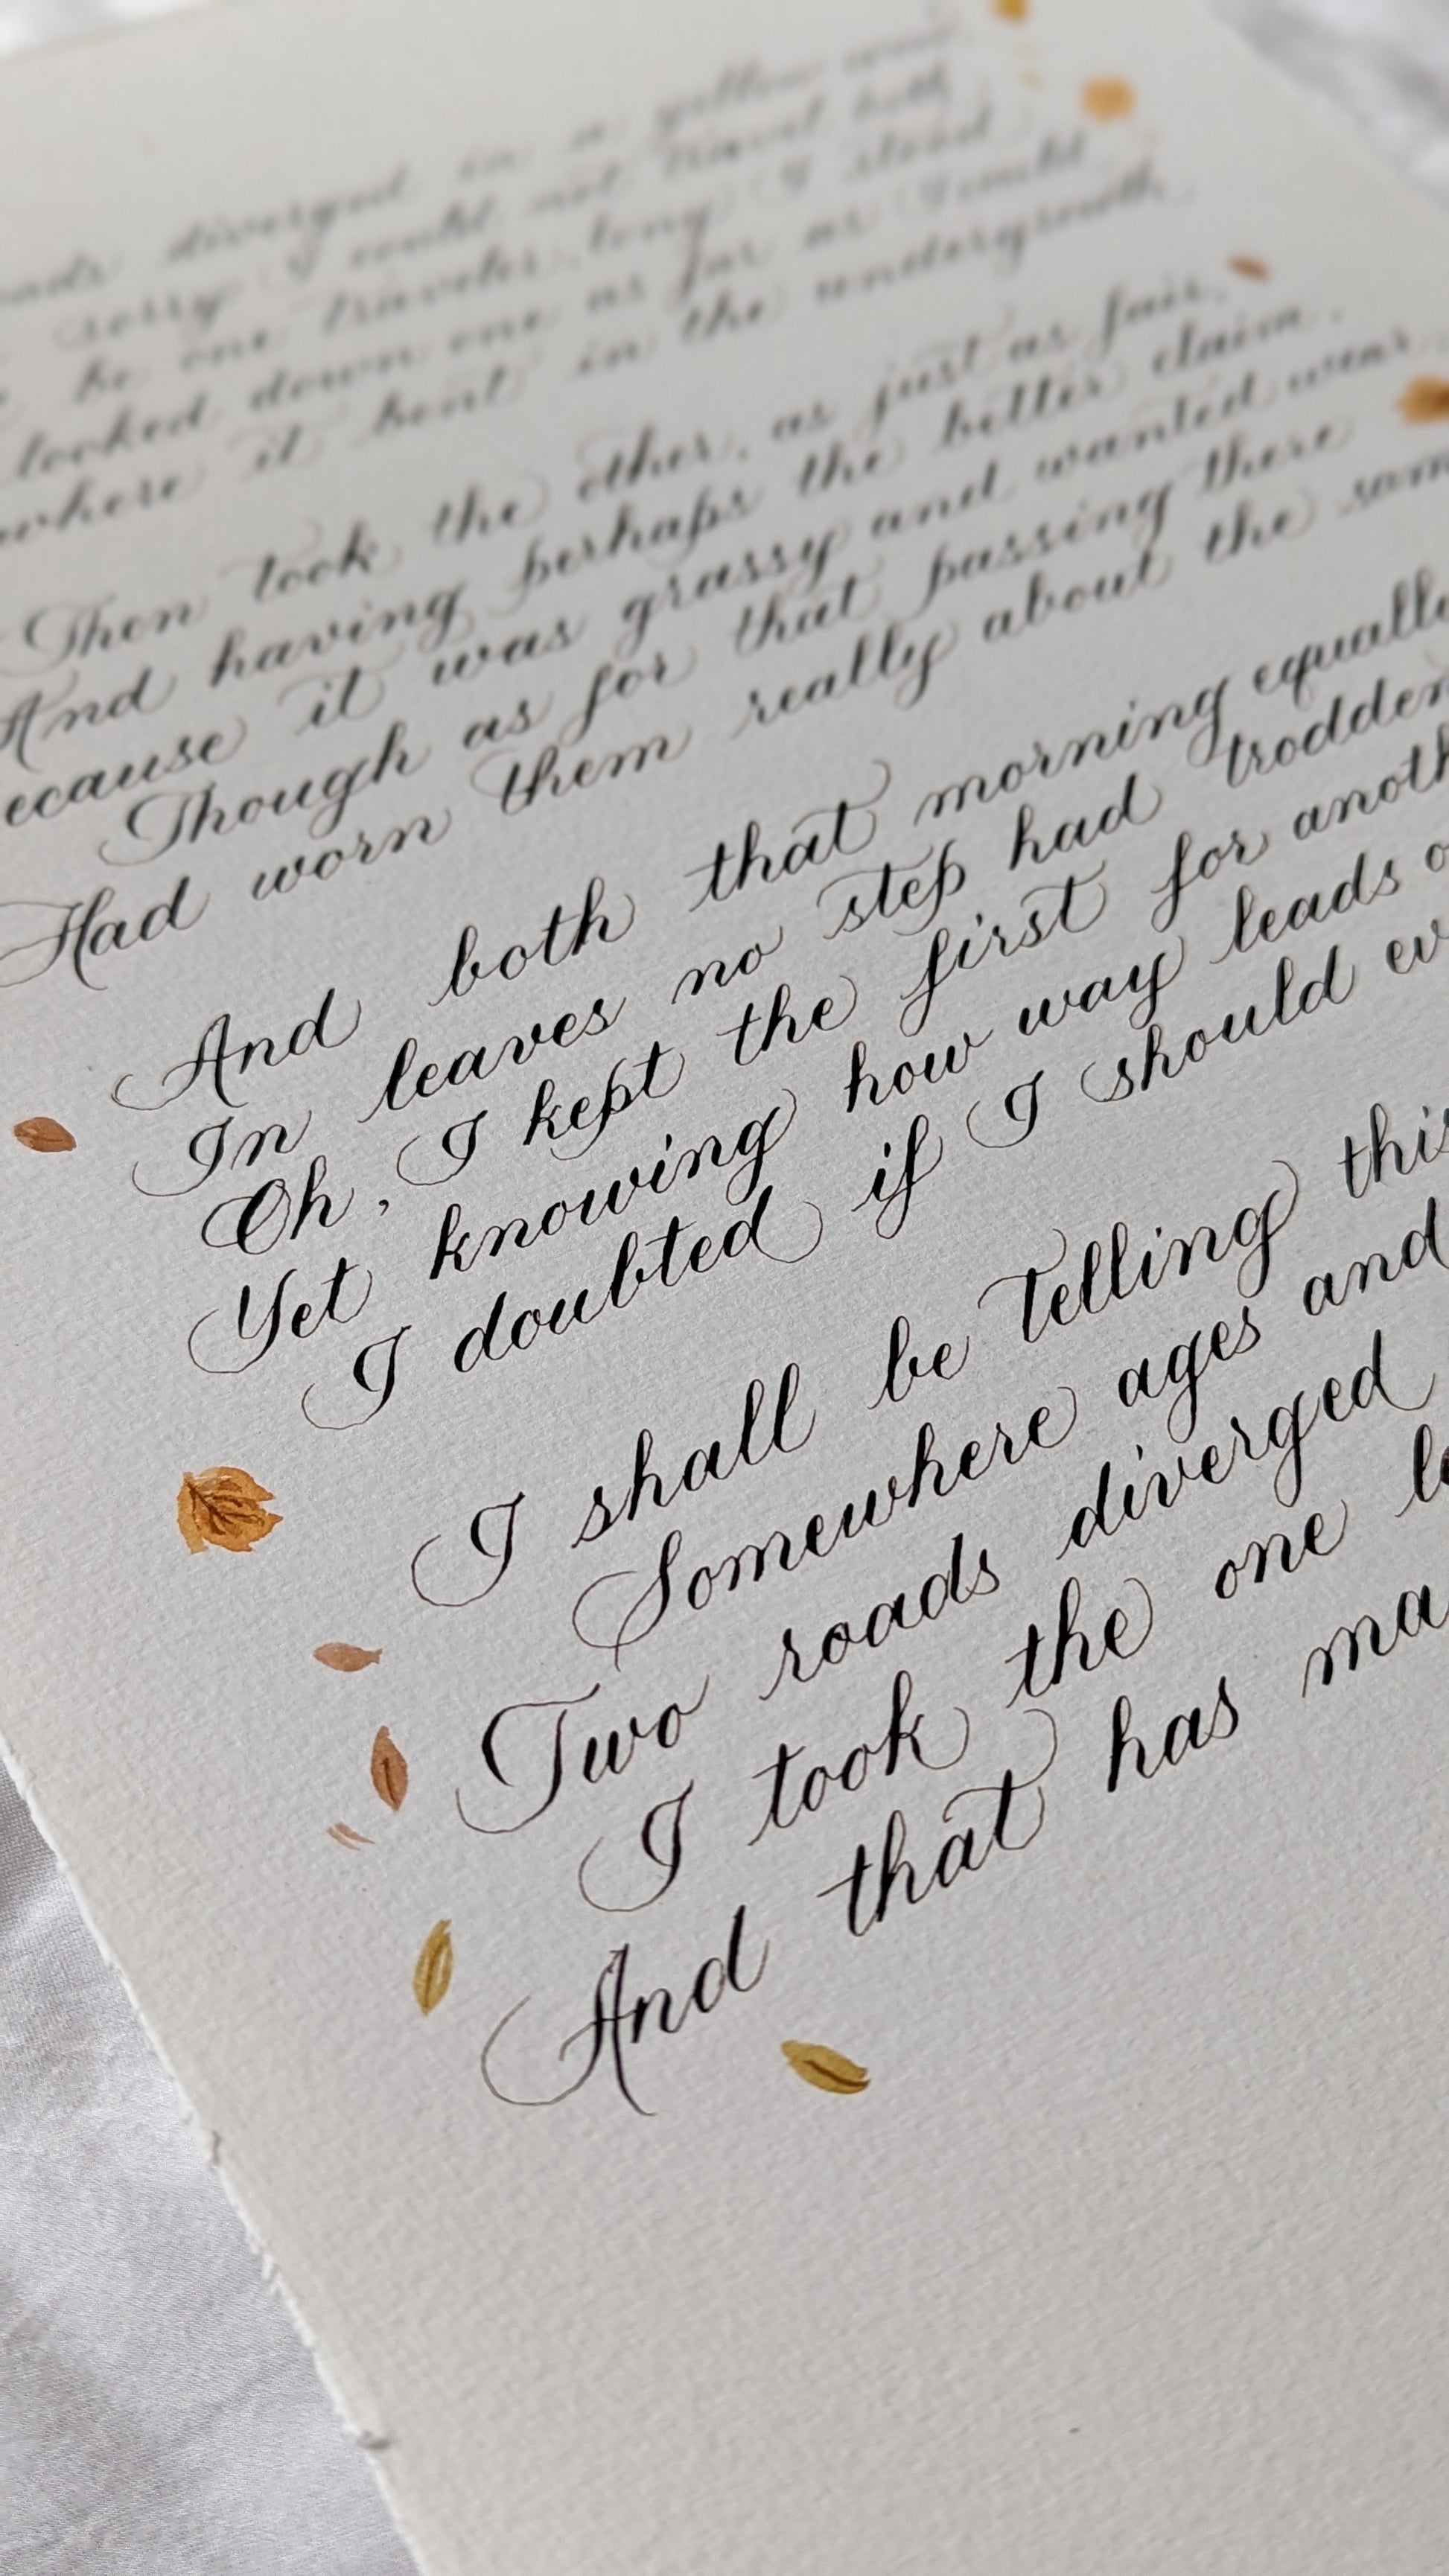 oads diverged in a yellow wood
sorry I could not travel both
be one traveler, long I stood
looked down one as far as I could
where it bent in the undergrowth
Then took the other, as just as fair,
And having perhaps the better claim,
ecause it was grassy and wanted wear,
Though as for that passing there
Had worn them really about the sam
And both that morning equally
In leaves no step had trodden
Oh, I kept the first for anoth
Yet knowing how way leads o
I doubted if I should ev
I shall be telling this
Somewhere ages and
Two roads diverged
I took the one l
And that has ma